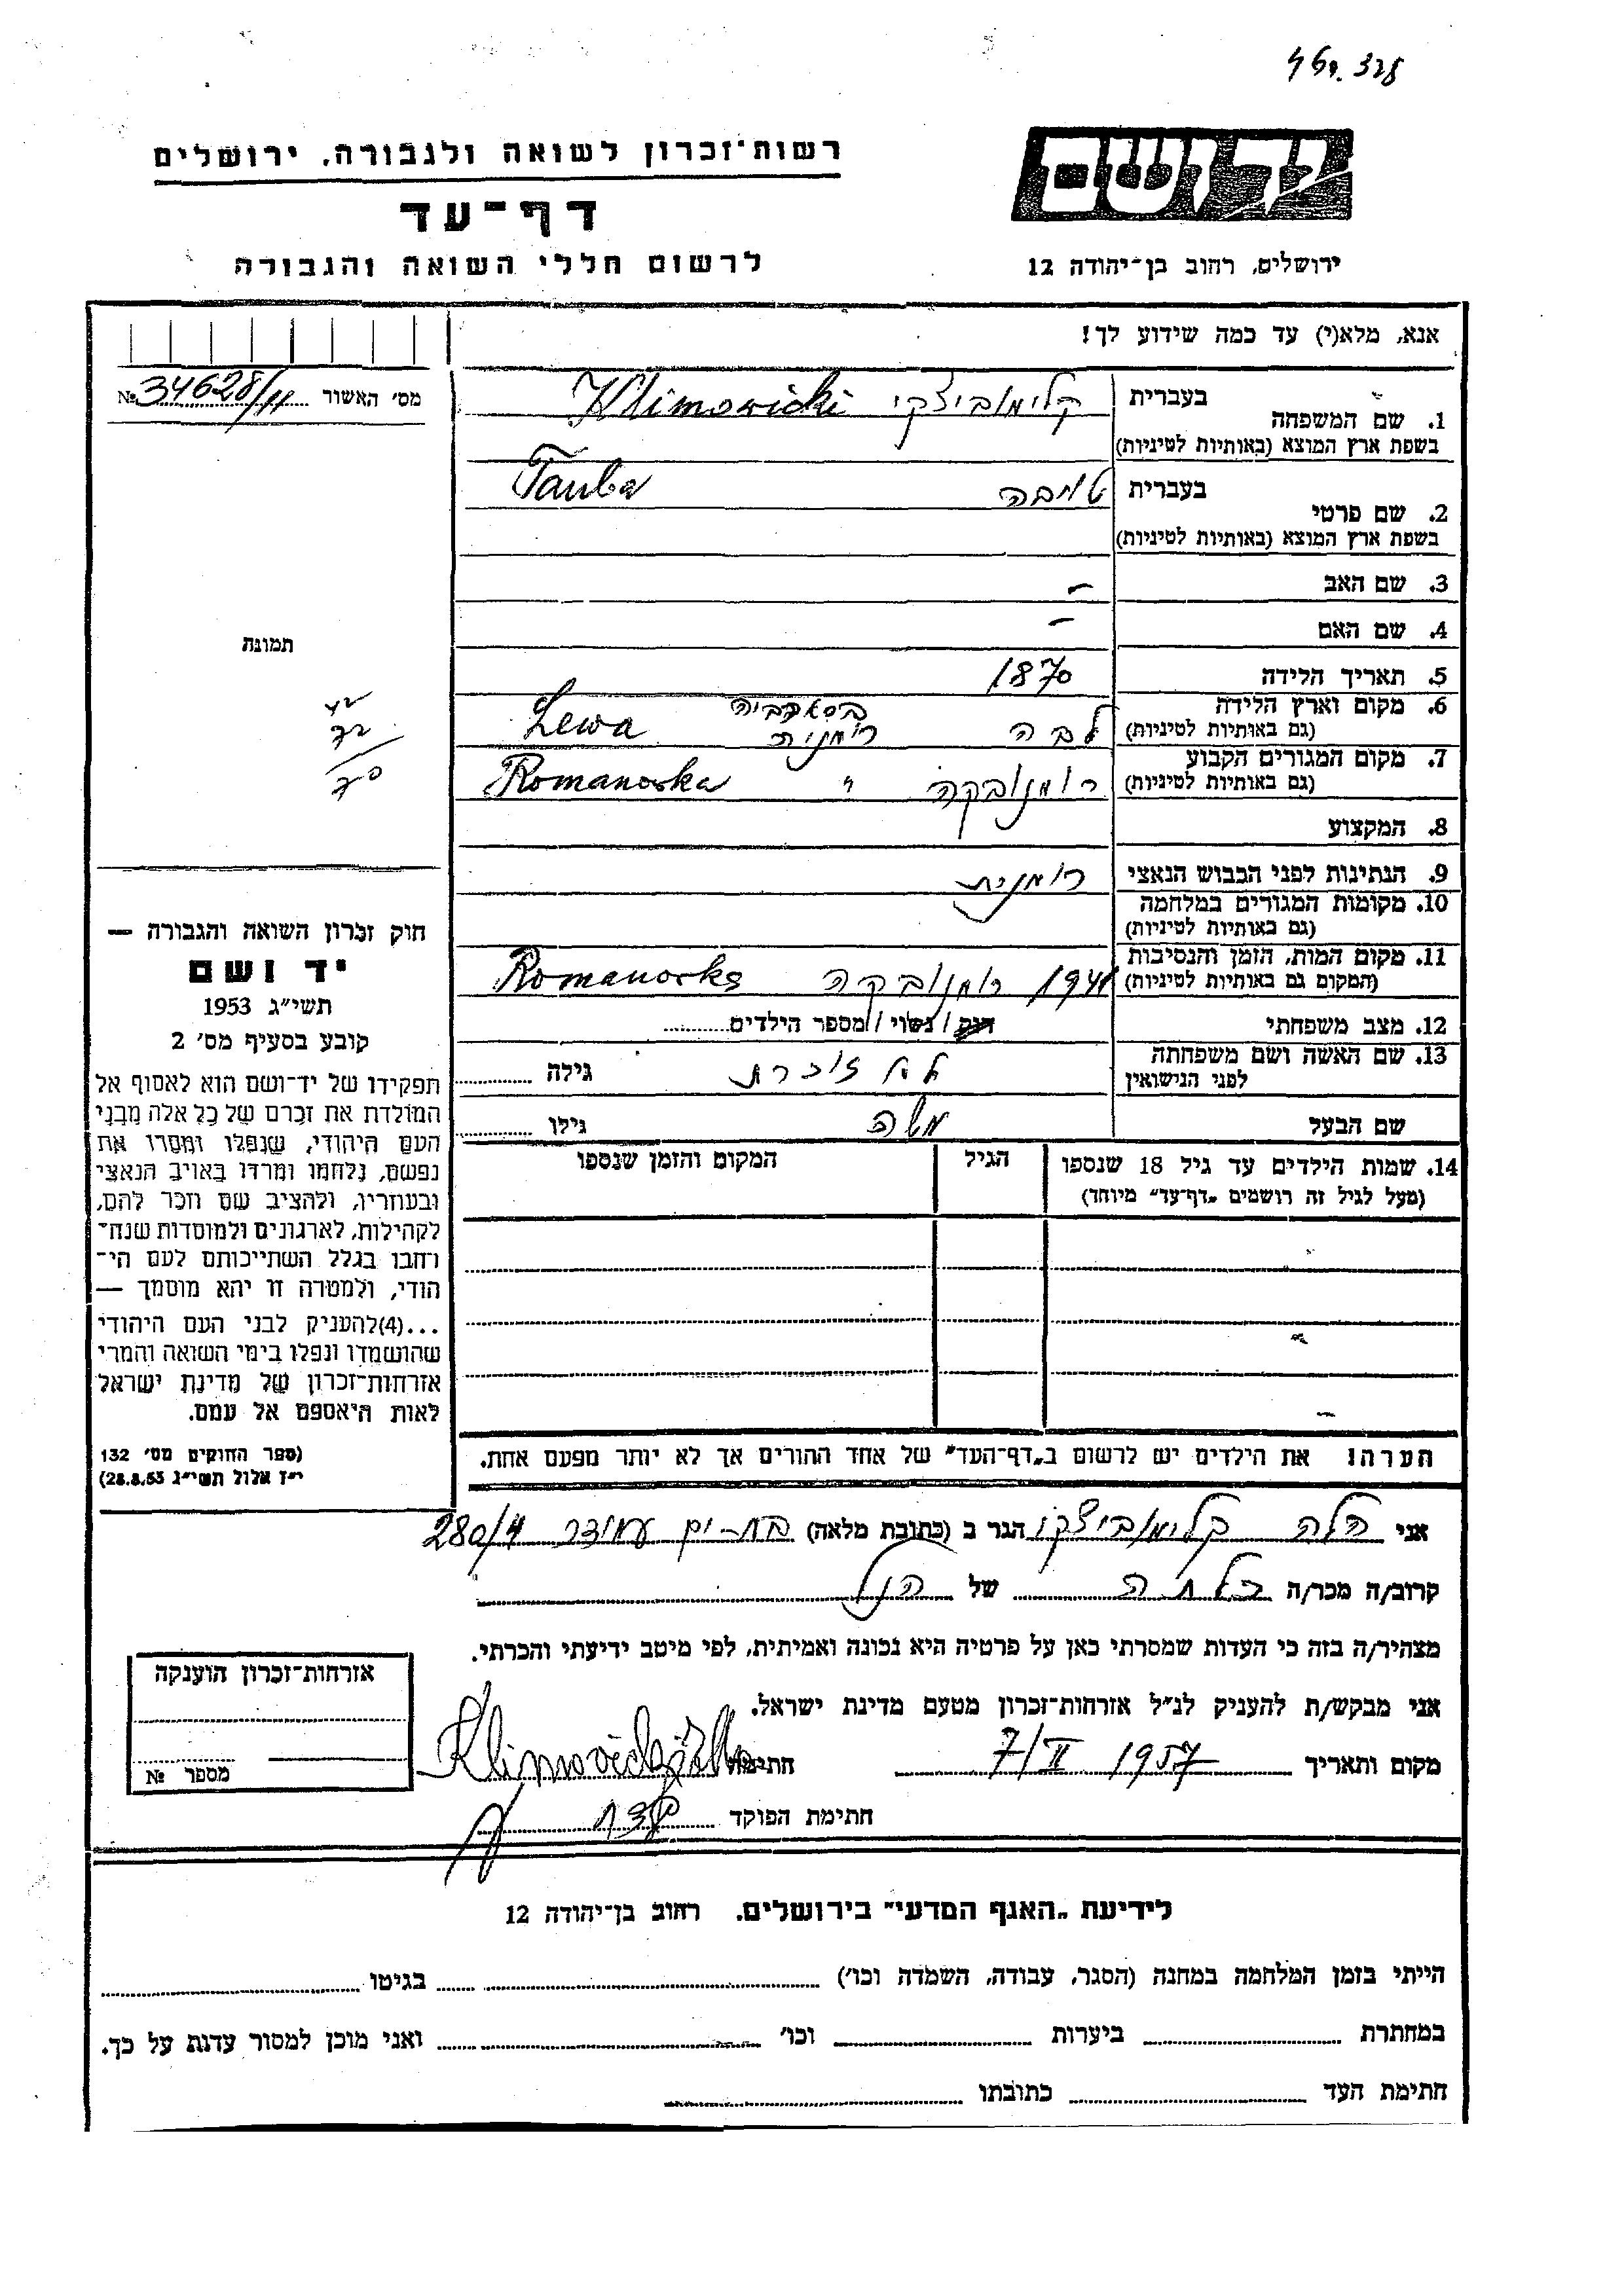 רשות־זכרון לשואה ולגבורה. ירושלים
יד ושם
דף־עד
לרשום חללי השואה והגבורה
ירושלים, רחוב בן־יהודה 12
אנא, מלא(י) עד כמה שידוע לך!
מס׳ האשור 34628/11 №
בעברית קלימוביצקי Klimowicki
1. שם המשפחה
בשפת ארץ המוצא (באותיות לטיניות)
בעברית טויבה Tauba
2. שם פרטי
בשפת ארץ המוצא (באותיות לטיניות)
3. שם האב –
4. שם האם –
תמונה
5. תאריך הלידה 1870
6. מקום וארץ הלידה בסארביה
(גם באותיות לטיניות) לבה רומניה Lewa
7. מקום המגורים הקבוע
(גם באותיות לטיניות) רומנובקה " Romanovka
8. המקצוע
9. הנתינות לפני הכבוש הנאצי רומנית
10. מקומות המגורים במלחמה
(גם באותיות לטיניות)
11. מקום המות, הזמן והנסיבות
(המקום גם באותיות לטיניות) 1941 רומנובקה Romanovka
12. מצב משפחתי רווק / נשוי / מספר הילדים
13. שם האשה ושם משפחתה
לפני הנישואין לא זוכרת גילה
שם הבעל משה גילו
14. שמות הילדים עד גיל 18 שנספו הגיל המקום והזמן שנספו
(מעל לגיל זה רושמים „דף־עד״ מיוחד)
חוק זכרון השואה והגבורה —
יד ושם
תשי״ג 1953
קובע בסעיף מס׳ 2
תפקידו של יד־ושם הוא לאסוף אל
המולדת את זכרם של כל אלה מבני
העם היהודי, שנפלו ומסרו את
נפשם, נלחמו ומרדו באויב הנאצי
ובעוזריו, ולהציב שם וזכר להם,
לקהילות, לארגונים ולמוסדות שנח־
רחבו בגלל השתייכותם לעם הי־
הודי, ולמטרה זו יהא מוסמך —
...(4)להעניק לבני העם היהודי
שהושמדו ונפלו בימי השואה והמרי
אזרחות־זכרון של מדינת ישראל
לאות היאספם אל עמם.
(ספר החוקים מס׳ 132
י״ז אלול תשי״ג 28.8.53)
הערה! את הילדים יש לרשום ב„דף־העד״ של אחד ההורים אך לא יותר מפעם אחת.
אני הלה קלימוביצקי הגר ב (כתובת מלאה) בת-ים עמידר 280/4
קרוב/ה מכר/ה כלתה של הנ"ל
מצהיר/ה בזה כי העדות שמסרתי כאן על פרטיה היא נכונה ואמיתית, לפי מיטב ידיעתי והכרתי.
אני מבקש/ת להעניק לנ״ל אזרחות־זכרון מטעם מדינת ישראל.
מקום ותאריך 7/II 1957 חתימה
חתימת הפוקד
אזרחות־זכרון הוענקה
מספר №
לידיעת „האגף המדעי״ בירושלים. רחוב בן־יהודה 12
הייתי בזמן המלחמה במחנה (הסגר, עבודה, השמדה וכו׳) בגיטו
במחתרת ביערות וכו׳ ואני מוכן למסור עדות על כך.
חתימת העד כתובתו